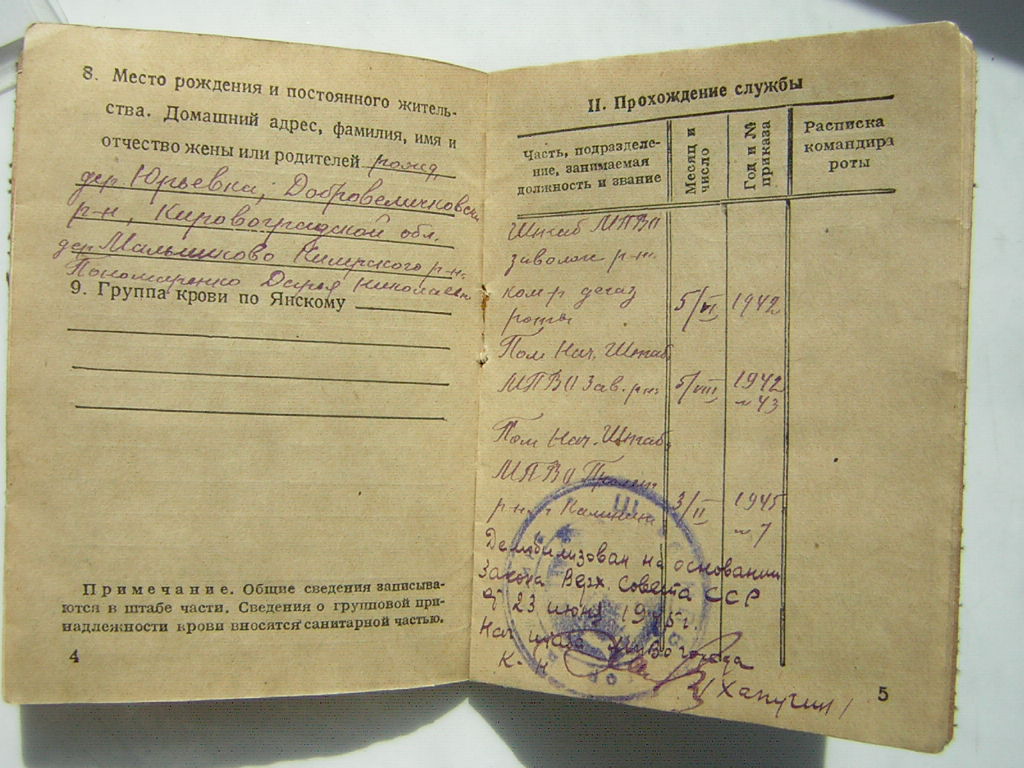 8. Место рождения и постоянного житель-
ства. Домашний адрес, фамилия, имя и
отчество жены или родителей рожд
дер Юрьевка, Добровеличковски
р-н, Кировоградской обл.
дер Мальчиково Кимрского р-н.
Пономаренко Дарья Николаевн
9. Группа крови по Янскому
Примечание. Общие сведения записыва-
ются в штабе части. Сведения о групповой при-
надлежности крови вносятся санитарной частью.
4
II. Прохождение службы
Часть, подразделе-
ние, занимаемая
должность и звание
Месяц и
число
Год и №
приказа
Расписка
командира
роты
Штаб МПВО
заволж р-н.
комр дегаз
роты 5/VI 1942
Пом Нач. Штаб
МПВО Зав. р-н 5/VIII 1942
№ 43
Пом Нач. Штаб
МПВО
р-н г Калинин 3/II 1945
№ 7
Демобилизован на основании
Закона Верх. Совета СССР
от 23 июня 1945г.
Нач штаба МПВО города
К-н Хапугин
5